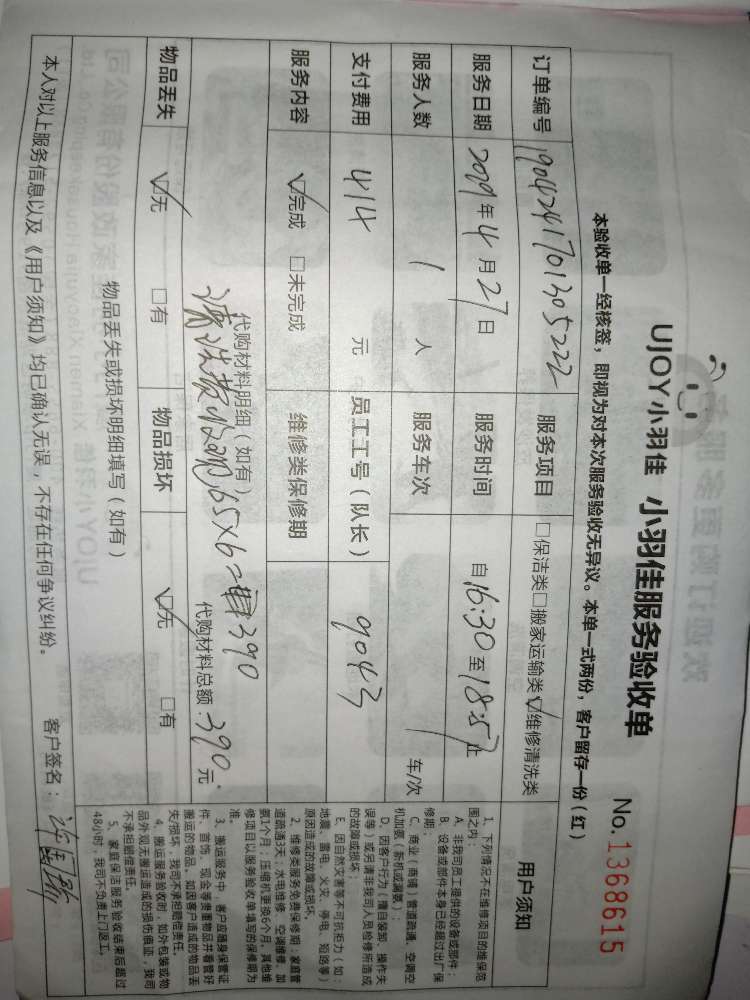 UJOY小羽佳 小羽佳服务验收单
No.1368615
本验收单一经核签，即视为对本次服务验收无异议。本单一式两份，客户留存一份（红）
订单编号 1904241701305222 服务项目 □保洁类□搬家运输类☑维修清洗类
服务日期 2019年4月27日 服务时间 自16:30至18:57止
服务人数 1 人 服务车次 / 车/次
支付费用 414 元 员工工号（队长） 9043
服务内容 ☑完成 □未完成 维修类保修期
代购材料明细（如有）
65×6=390
代购材料总额：390元
物品丢失 ☑无 □有 物品损坏 ☑无 □有
物品丢失或损坏明细填写（如有）
本人对以上服务信息以及《用户须知》均已确认无误，不存在任何争议纠纷。 客户签名：
用户须知
1、下列情况不在维修项目的维保范
围之内：
A、非我司员工提供的设备或部件；
B、设备或部件本身已经超过出厂保
修期；
C、商业（商铺）管道疏通、空调空
机加氨（新机或漏氨）；
D、因客户行为（擅自装卸、操作失
误等）或另请非我司人员检修所造成
的故障或损坏；
E、因自然灾害等不可抗拒力（如：
地震、雷电、火灾、停电、短路等）
原因造成的故障或损坏。
2、维修类服务免费保修期：家庭管
道疏通3天；水电维修、空调维修、加
氨1个月；压缩机更换6个月，其他维
修项目以服务验收单填写的保修期为
准。
3、搬运服务中，客户应随身保管证
件、首饰、现金等贵重物品并看管好
搬运的物品。如因客户造成的物品丢
失/损坏，我司不承担赔偿责任。
4、搬运服务验收时，如外包装或物
品外观无搬运造成的损伤痕迹，我司
不承担赔偿责任。
5、家庭保洁服务验收结束后超过
48小时，我司不负责上门返工。